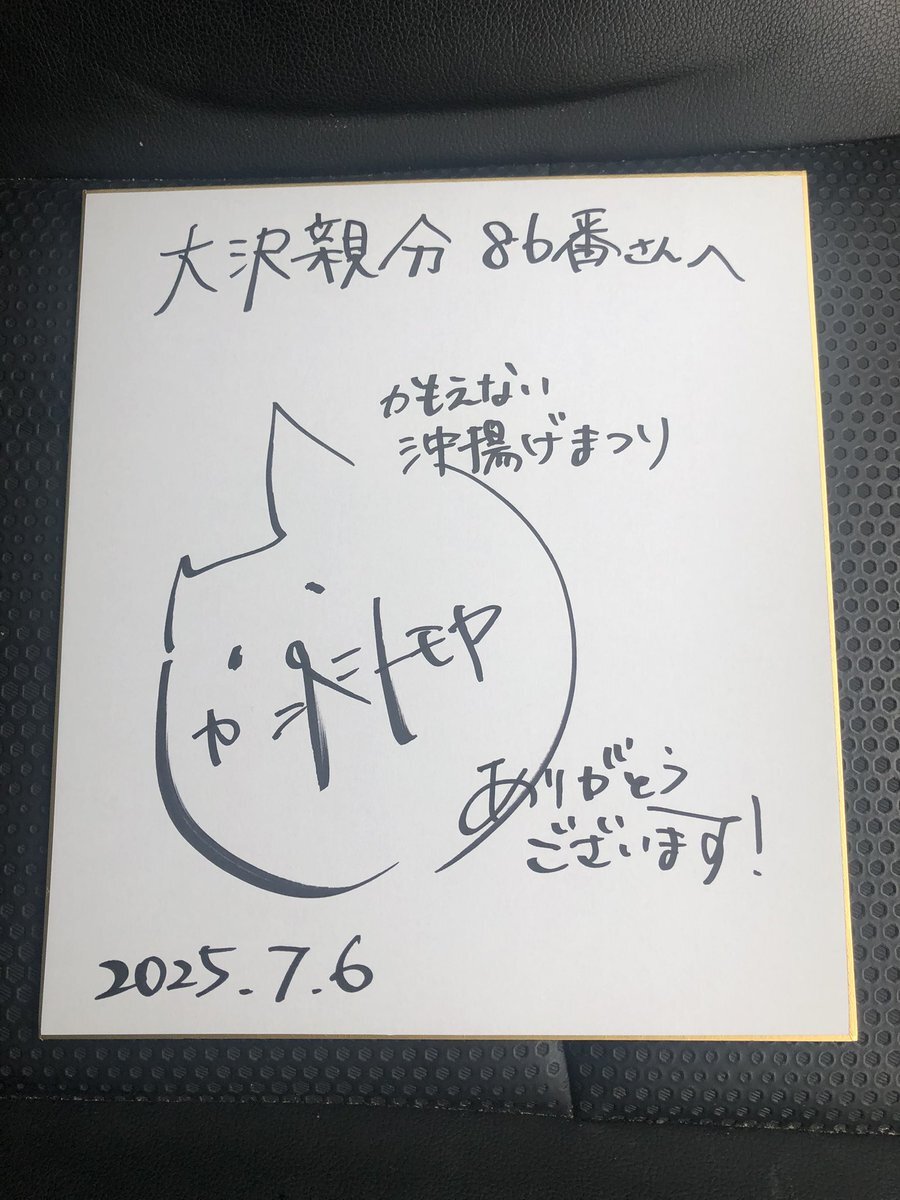 大沢親分 86番さんへ
かもえない
沖揚げまつり
トモヤ
ありがとう
ございます!
2025.7.6